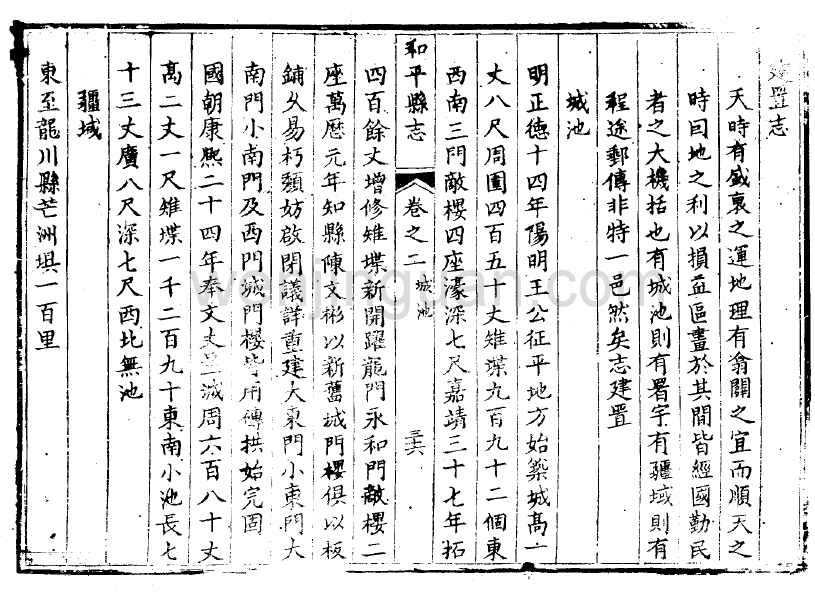 建置志
天時有盛衰之運地理有翕闢之宜而順天之
時因地之利以損益區畫於其間皆經國勤民
者之大機括也有城池則有署宇有疆域則有
程途郵傳非特一邑然矣志建置
城池
明正德十四年陽明王公征平地方始築城高一
丈八尺周圍四百五十丈雉堞九百九十二個東
西南三門敵樓四座濠深七尺嘉靖三十七年拓
和平縣志 卷之二 城池 三六
四百餘丈增修雉堞新開躍龍門永和門敵樓二
座萬曆元年知縣陳文彬以新舊城門樓俱以板
鋪久易朽頹妨啟閉議詳重建大東門小東門大
南門小南門及西門城門樓皆用磚拱始完固
國朝康熙二十四年奉文丈量城周六百八十丈
高二丈一尺雉堞一千二百九十東南小池長七
十三丈廣八尺深七尺西北無池
疆域
東至龍川縣芒洲埧一百里
wenjinguan.com